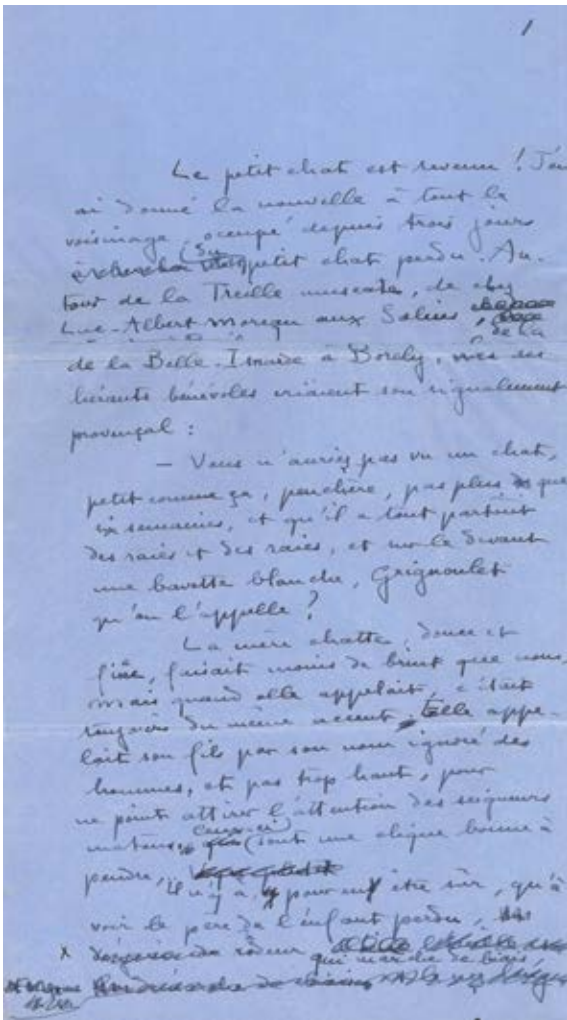 1
Le petit chat est revenu ! J'en
ai donné la nouvelle à tout le
voisinage occupé depuis trois jours
à chercher du petit chat perdu. Au-
tour de la Treille muscate, de chez
Luc-Albert Moreau aux Salins, de la
de la Belle-Isnarde à Borély, mes
bénévoles criaient son signalement
provençal :
— Vous n'auriez pas vu un chat,
petit comme ça, peuchère, pas plus que
six semaines, et qu'il a tout partout
des raies et des raies, et sur le devant
une bavette blanche, Grignoulet
qu'on l'appelle ?
La mère chatte, douce et
fine, faisait moins de bruit que nous,
mais quand elle appelait, c'était
toujours du même accent. Elle appe-
lait son fils par son nom ignoré des
hommes, et pas trop haut, pour
ne point attirer l'attention des seigneurs
matous, ceux-ci sont une clique bonne à
pendre,
Il n'y a, pour en être sûr, qu'à
voir le père de l'enfant perdu,
rôdeur
qui marche de biais